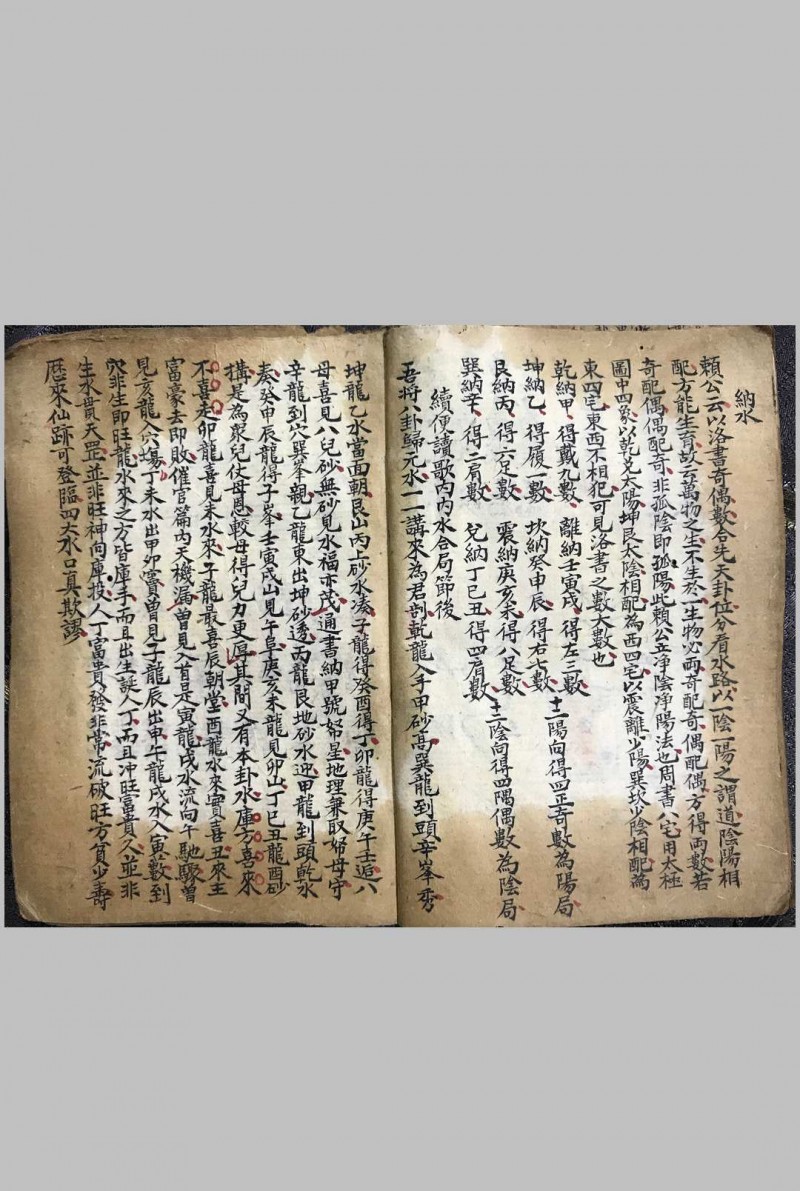 納水
賴公云以洛書奇偶數合先天卦位分看水路以一陰一陽之謂道陰陽相
配方能生育故云萬物之生不生於一生物必兩奇配奇偶配偶方得兩數若
奇配偶偶配奇非孤陰即孤陽此賴公立净陰净陽法也周書八宅用太極
圖中四象以乾兌太陽坤艮太陰相配為西四宅以震離少陽巽坎少陰相配為
東四宅東西不相犯可見洛書之數大數也
乾納甲得戴九數 離納壬寅戌得左三數
坤納乙得履一數 坎納癸申辰得右七數 十二陽向得四正奇數為陽局
艮納丙得六足數 震納庚亥未得八足數
巽納辛得二肩數 兌納丁巳丑得四肩數 十二陰向得四隅偶數為陰局
續便讀歌內內水合局節後
吾將八卦歸元水一一講來為君剖乾龍入手甲砂高巽龍到頭辛峯秀
坤龍乙水當面朝艮山丙上砂水湊子龍得癸酉得丁卯龍得庚午壬逅八
母喜見八兒砂無砂見水福亦茂通書納甲號帑星地理兼取婦母守
辛龍到穴巽峯親乙龍東出坤砂透丙龍艮地砂水迎甲龍到頭乾水
奏癸申辰龍得子峯壬寅戌山見午阜庚亥未龍見卯山丁巳丑龍酉砂
搆是為眾兒仗母恩較母得兒力更厚其間又有本卦水庫方喜來
不喜走卯龍喜見未水來子龍最喜辰朝堂酉龍水來實喜丑來主
富豪去即敗催官篇內天機漏曽見入首是寅龍戌水流向午馳驟曽
見亥龍入穴塲丁未水出甲卯竇曽見子龍辰出申午龍戌水入寅藪到
穴非生即旺龍水來之方皆庫手而且出生誕人丁而且冲旺富貴久並非
生水貴天罡並非旺神向庫投人丁富貴發非常流破旺方貧少壽
歷來仙跡可登臨四大水口真欺謬